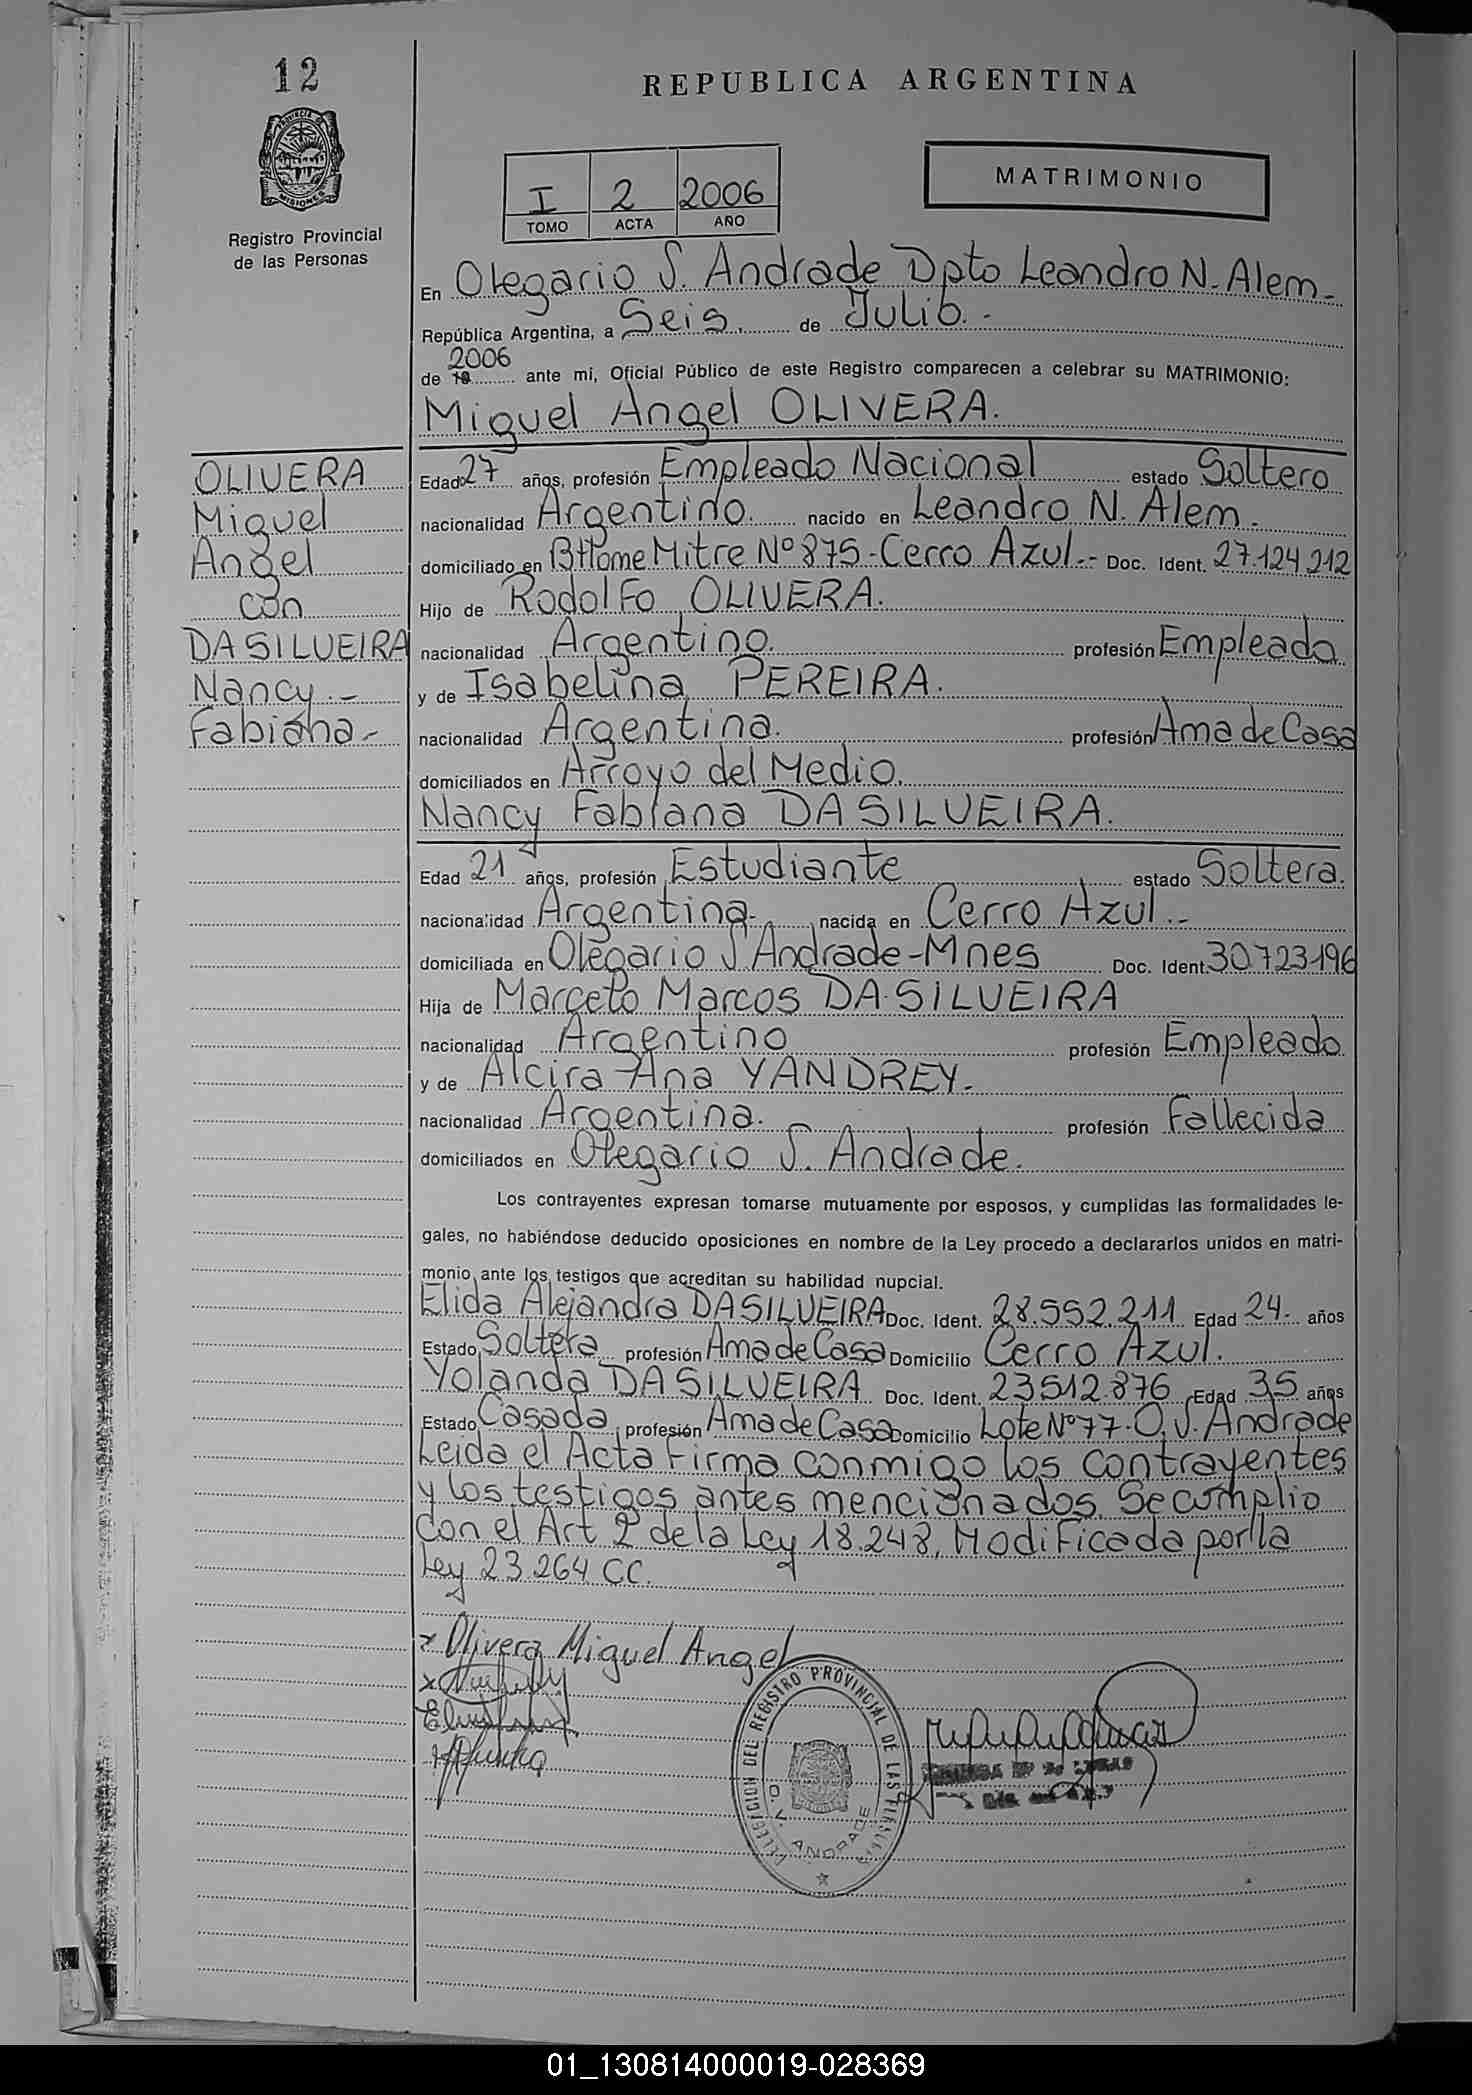 12
REPUBLICA ARGENTINA
PROVINCIA DE
MISIONES
Registro Provincial
de las Personas
I 2 2006
TOMO ACTA AÑO
MATRIMONIO
En Olegario S. Andrade Dpto Leandro N. Alem.-
República Argentina, a Seis. de Julio. -
2006
de 19 ante mi, Oficial Público de este Registro comparecen a celebrar su MATRIMONIO:
Miguel Angel OLIVERA.
OLIVERA
Miguel
Angel
con
DASILVEIRA
Nancy.-
Fabiana-
Edad 27 años, profesión Empleado Nacional estado Soltero
nacionalidad Argentino. nacido en Leandro N. Alem.
domiciliado en BtlomeMitre Nº 875-Cerro Azul.- Doc. Ident. 27.124.212
Hijo de Rodolfo OLIVERA.
nacionalidad Argentino. profesión Empleado
y de Isabelina PEREIRA.
nacionalidad Argentina. profesión Ama de Casa
domiciliados en Arroyo del Medio.
Nancy Fabiana DASILVEIRA.
Edad 21 años, profesión Estudiante estado Soltera.
nacionalidad Argentina. nacida en Cerro Azul.-
domiciliada en Olegario S Andrade-Mnes Doc. Ident. 30723196
Hija de Marcelo Marcos DA.SILVEIRA
nacionalidad Argentino profesión Empleado
y de Alcira Ana YANDREY.
nacionalidad Argentina. profesión Fallecida
domiciliados en Olegario S. Andrade.
Los contrayentes expresan tomarse mutuamente por esposos, y cumplidas las formalidades le-
gales, no habiéndose deducido oposiciones en nombre de la Ley procedo a declararlos unidos en matri-
monio ante los testigos que acreditan su habilidad nupcial.
Elida Alejandra DASILVEIRA Doc. Ident. 28.552.211 Edad 24- años
Estado Soltera profesión Ama de Casa Domicilio Cerro Azul.
Yolanda DASILVEIRA Doc. Ident. 23512.876 Edad 35 años
Estado Casada profesión Ama de Casa Domicilio Lote Nº77-O.S. Andrade
Leida el Acta Firma conmigo los contrayentes
y los testigos antes mencionados. Se cumplio
con el Art 2º de la Ley 18.248, Modificada por la
Ley 23.264 CC.
x Olivera Miguel Angel
DELEGACION DEL REGISTRO PROVINCIAL DE LAS PERSONAS
O. V. ANDRADE
01_130814000019-028369